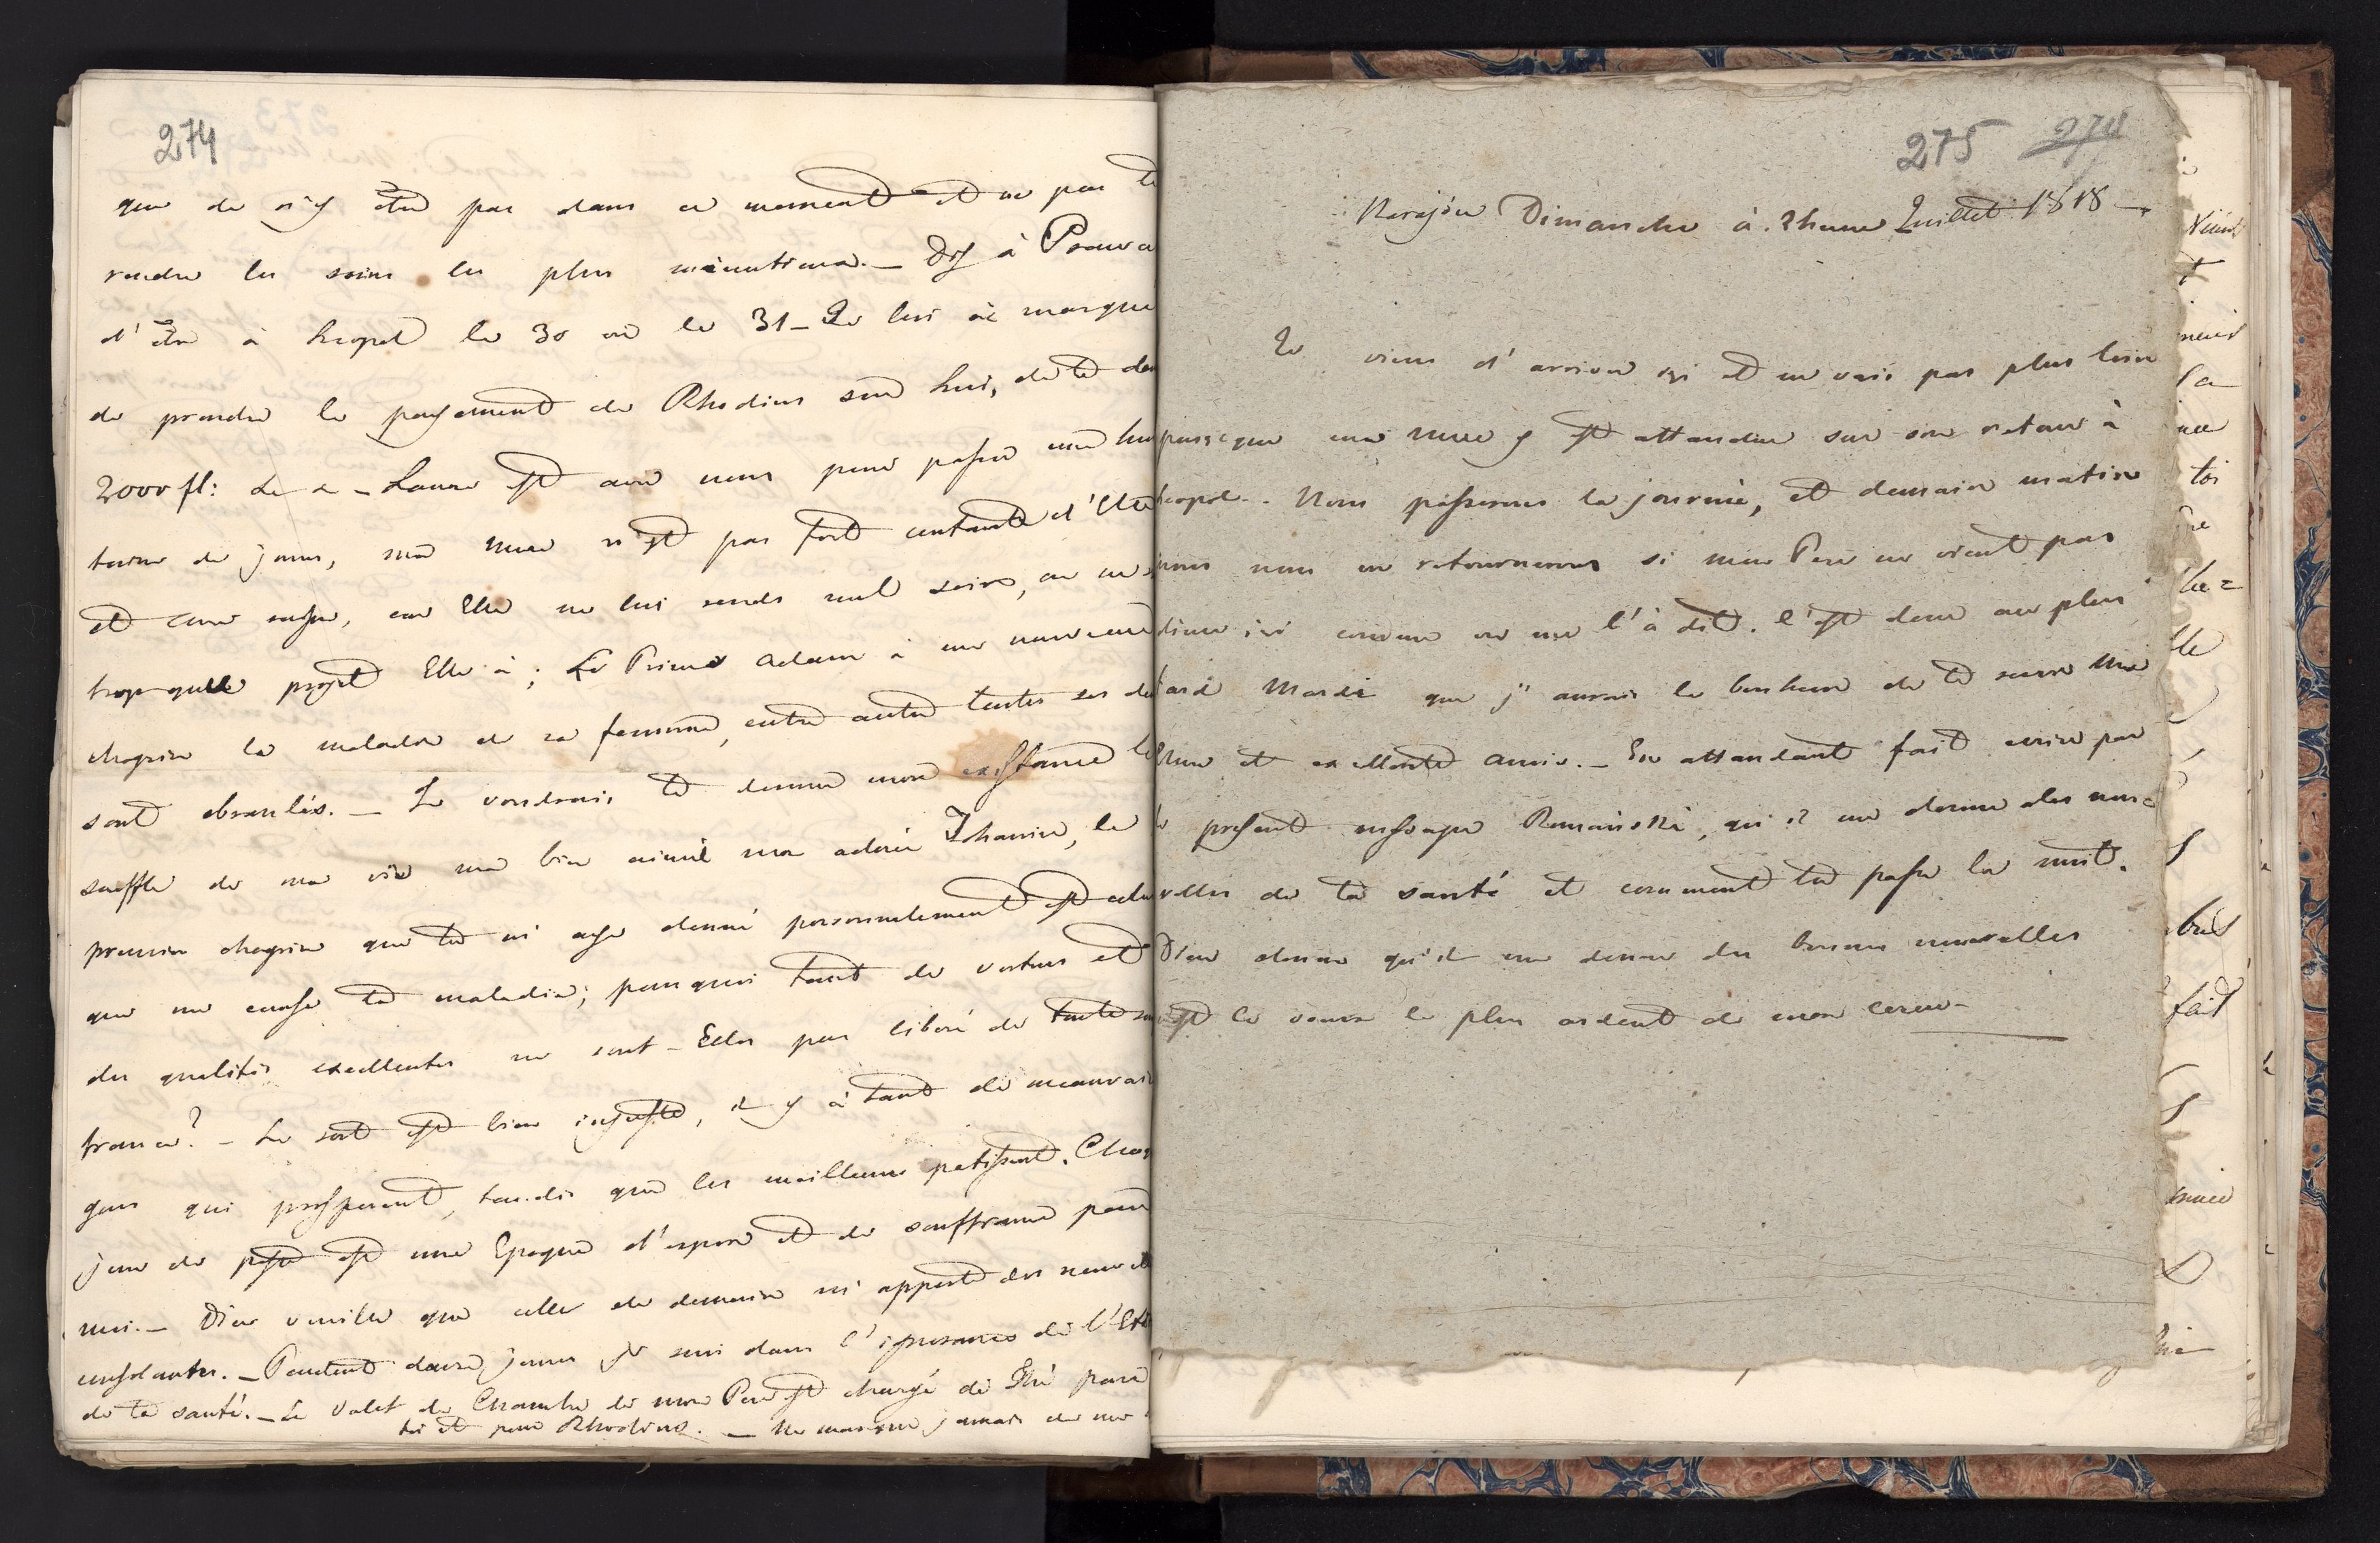 274
que de n'y être pas dans ce moment et ne pas te
rendre les soins les plus minutieux. — Dis à
d'être à Leopol le 30 ou le 31 — Je lui ai marqué
de prendre le payement de Rhodius sur lui, de te
2000 fl: de — Laure est avec nous pour passer une
de jours, ma mere n'est pas fort contante d'Elle
et cause, car Elle ne lui rends nul soins,
trop quelle projet Elle à; Le Prince Adam à un nouveau
chagrin la maladie de sa femme, entre autre toutes ses
sont ebranlés. — Je voudrais te donner mon existance le
souffle de ma vie ma bien aimée mon adorée, le
premier chagrin que tu m'aye donné personnelement est celui
que me cause ta maladie; pourquoi tant de vertus et
des qualités excellentes ne sont-Elles pas liberé de toute
france? — Le sort est bien injuste, il y à tant de mauvais
gens qui prosperent, tandis que les meilleurs patissent. Chaq
jour de poste est une Epoque d'espoir et de souffrance pour
moi. — Dieu veuille que celle de demain m'apporte des nouvel
consolantes. — Pendant jours je suis dans l'ignorance de l'Etat
de ta santé. — Le Valet de Chambre de mon Pere est chargé de Thé pour
toi et pour Rhodius. — Ne manque jamais de me
275 274
Narajów Dimanche à heure Juillet 1818 —
Je viens d'arriver ici et ne vais pas plus loin
puisque ma mere y est attandue sur son retour à
Leopol. — Nous passerons la journée, et demain matin
nous nous en retournerons si mon Pere ne vient pas
diner ici comme on me l'à dit. C'est donc au plus
tard Mardi que j'aurais le bonheur de te revoir ma
et excellente amie. — En attendant fait ecrire par
le present messager, qu'il me donne des nou=
velles de ta santé et comment tu passe la nuit.
Dieu donne qu'il me donne des bonnes nouvelles
c'est le voeux le plus ardent de mon coeur —